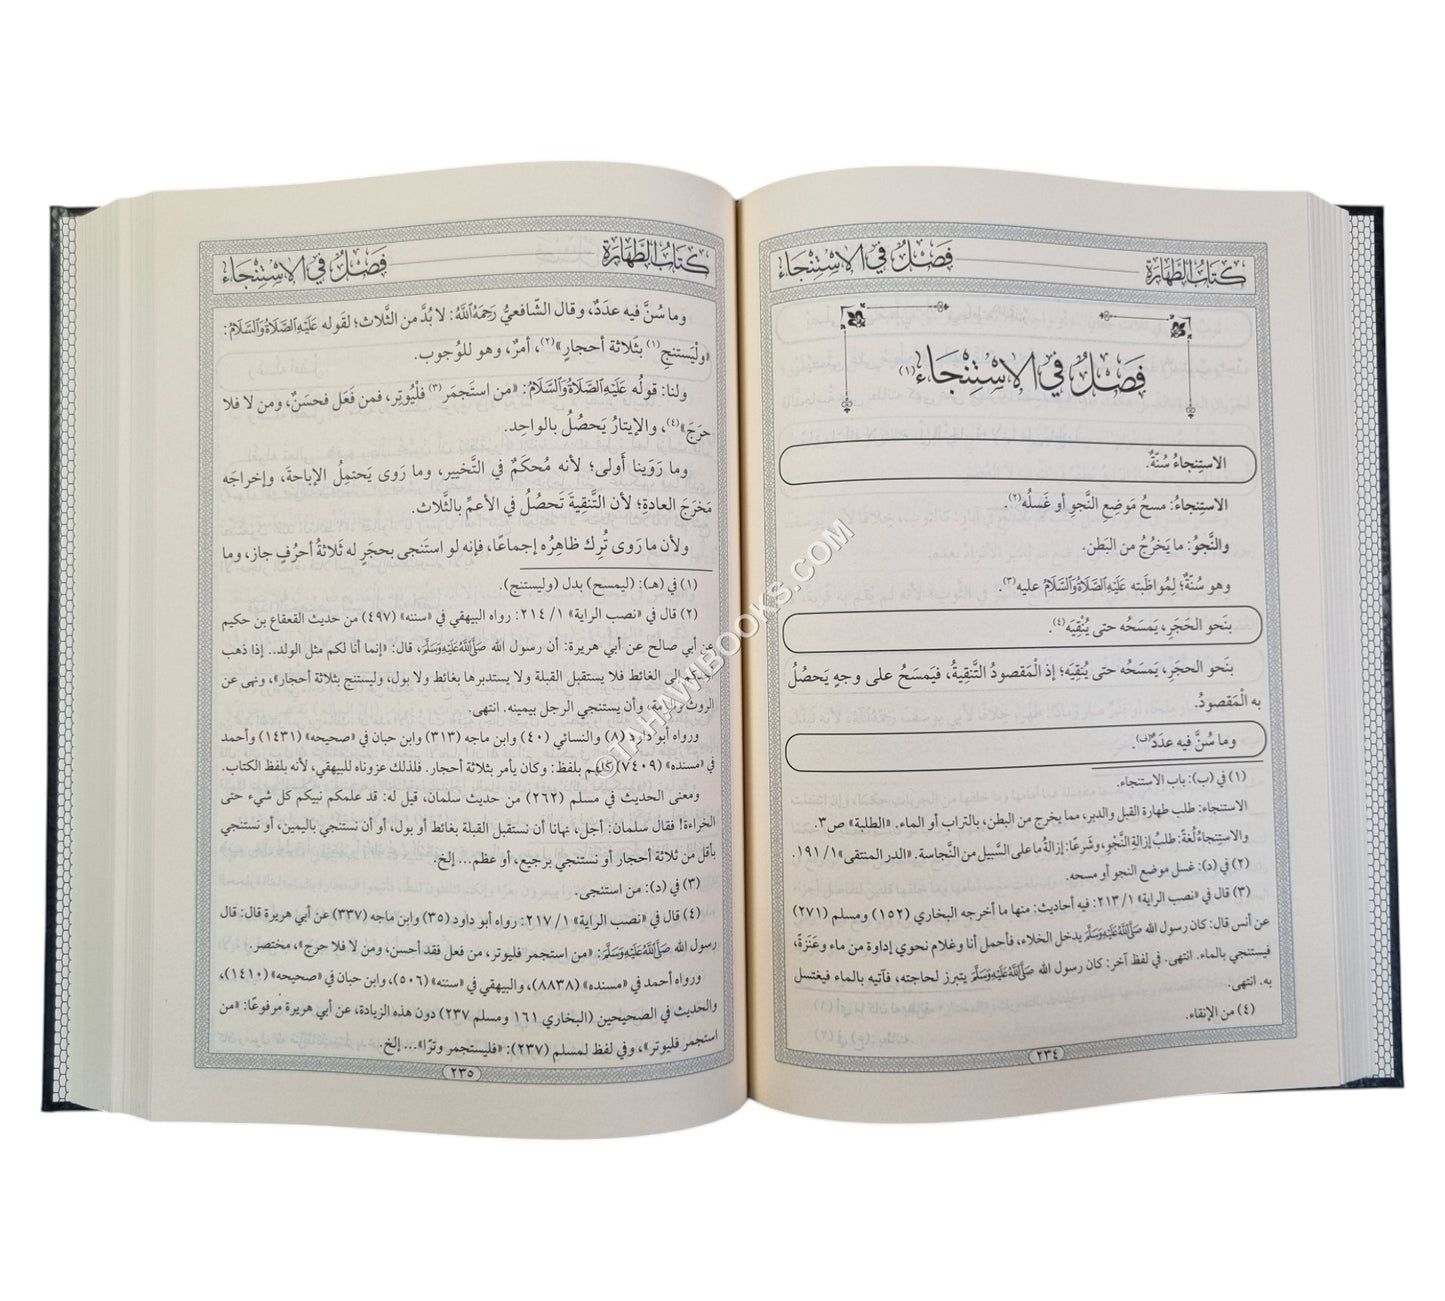 كتاب الطهارة فصل في الاستنجاء
فَصْلٌ فِي الِاسْتِنْجَاءِ(١)
الاستِنجاءُ سُنّةٌ.
الاستِنجاءُ: مسحُ مَوضِعِ النَّجوِ أو غَسلُه(٢).
والنَّجوُ: ما يَخرُجُ من البَطن.
وهو سُنّةٌ؛ لِمُواظَبته عَلَيْهِ الصَّلَاةُ وَالسَّلَامُ عليه(٣).
بنَحو الحَجَرِ، يَمسَحُه حتى يُنْقِيَه(٤).
بنَحو الحجَرِ، يَمسَحُه حتى يُنقِيَه؛ إذ الْمَقصودُ التَّنقِيةُ، فيَمسَحُ على وجهٍ يَحصُلُ
به الْمَقصودُ.
وما سُنَّ فيه عدَدٌ(ف).
(١) في (ب): باب الاستنجاء.
الاستنجاء: طلب طهارة القبل والدبر، مما يخرج من البطن، بالتراب أو الماء. «الطلبة» ص٣.
والاستِنجاءُ لُغةً: طلبُ إزالةِ النَّجْوِ، وشَرعًا: إزالةُ ما على السَّبيل من النَّجاسة. «الدر المنتقى» ١/ ١٩١.
(٢) في (د): غسل موضع النجو أو مسحه.
(٣) قال في «نصب الراية» ١/ ٢١٣: فيه أحاديث: منها ما أخرجه البخاري (١٥٢) ومسلم (٢٧١)
عن أنس قال: كان رسول الله ﷺ يدخل الخلاء، فأحمل أنا وغلام نحوي إداوة من ماء وعَنَزةً،
فيستنجي بالماء. انتهى. في لفظ آخر: كان رسول الله ﷺ يتبرز لحاجته، فآتيه بالماء فيغتسل
به. انتهى.
(٤) من الإنقاء.
٢٣٤
كتاب الطهارة فصل في الاستنجاء
وما سُنَّ فيه عدَدٌ، وقال الشّافعيُّ رَحِمَهُ اللَّهُ: لا بُدَّ من الثَّلاث؛ لقَوله عَلَيْهِ الصَّلَاةُ وَالسَّلَامُ:
«ولْيَستنجِ(١) بثَلاثة أحجارٍ»(٢)، أمرٌ، وهو للوُجوب.
ولنا: قولُه عَلَيْهِ الصَّلَاةُ وَالسَّلَامُ: «من استَجمَر(٣) فلْيُوتِر، فمن فَعَل فحسَنٌ، ومن لا فلا
حرَجَ»(٤)، والإيتارُ يَحصُلُ بالواحد.
وما رَوَينا أَولى؛ لأنه مُحكَمٌ في التَّخيير، وما رَوى يَحتمِلُ الإباحةَ، وإخراجَه
مَخرَجَ العادةِ؛ لأن التَّنقِيةَ تَحصُلُ في الأعمِّ بالثَّلاث.
ولأن ما رَوى تُرِك ظاهِرُه إجماعًا، فإنه لو استَنجى بحجَرٍ له ثَلاثةُ أحرُفٍ جاز، وما
(١) في (هـ): (ليمسح) بدل (وليستنج).
(٢) قال في «نصب الراية» ١/ ٢١٤: رواه البيهقي في «سننه» (٤٩٧) من حديث القعقاع بن حكيم
عن أبي صالح عن أبي هريرة: أن رسول الله ﷺ، قال: «إنما أنا لكم مثل الولد.. إذا ذهب
أحدكم إلى الغائط فلا يستقبل القبلة ولا يستدبرها بغائط ولا بول، وليستنج بثلاثة أحجار»، ونهى عن
الروث والرمة، وأن يستنجي الرجل بيمينه. انتهى.
ورواه أبو داود (٨) والنسائي (٤٠) وابن ماجه (٣١٣) وابن حبان في «صحيحه» (١٤٣١) وأحمد
في «مسنده» (٧٤٠٩) كلهم بلفظ: وكان يأمر بثلاثة أحجار. فلذلك عزوناه للبيهقي، لأنه بلفظ الكتاب.
ومعنى الحديث في مسلم (٢٦٢) من حديث سلمان، قيل له: قد علمكم نبيكم كل شيء حتى
الخراءة! فقال سلمان: أجل، نهانا أن نستقبل القبلة بغائط أو بول، أو أن نستنجي باليمين، أو نستنجي
بأقل من ثلاثة أحجار أو نستنجي برجيع، أو عظم... إلخ.
(٣) في (د): من استنجى.
(٤) قال في «نصب الراية» ١/ ٢١٧: رواه أبو داود (٣٥) وابن ماجه (٣٣٧) عن أبي هريرة قال: قال
رسول الله ﷺ: «من استجمر فليوتر، من فعل فقد أحسن، ومن لا فلا حرج»، مختصر.
ورواه أحمد في «مسنده» (٨٨٣٨)، والبيهقي في «سننه» (٥٠٦)، وابن حبان في «صحيحه» (١٤١٠)،
والحديث في الصحيحين (البخاري ١٦١ ومسلم ٢٣٧) دون هذه الزيادة، عن أبي هريرة مرفوعًا: «من
استجمر فليوتر»، وفي لفظ لمسلم (٢٣٧): «فليستجمر وترًا»... إلخ.
٢٣٥
©TAHAWIBOOKS.COM